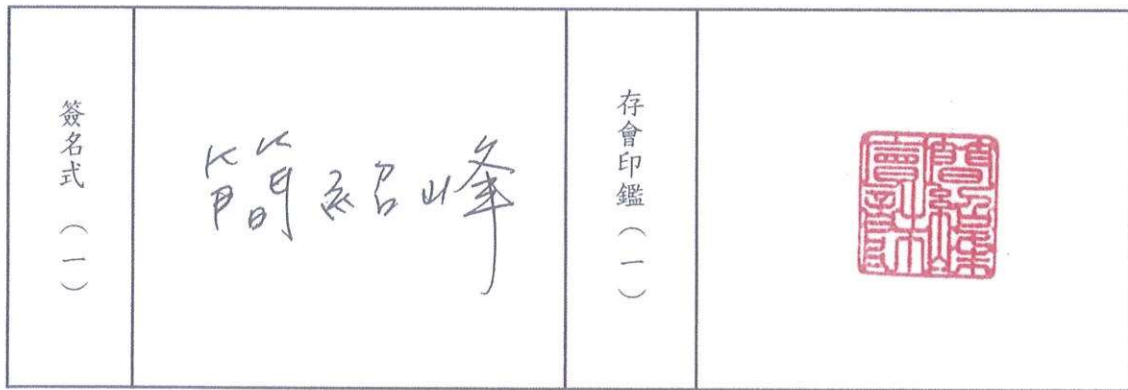 簽名式（一）
簡紹峰
存會印鑑（一）